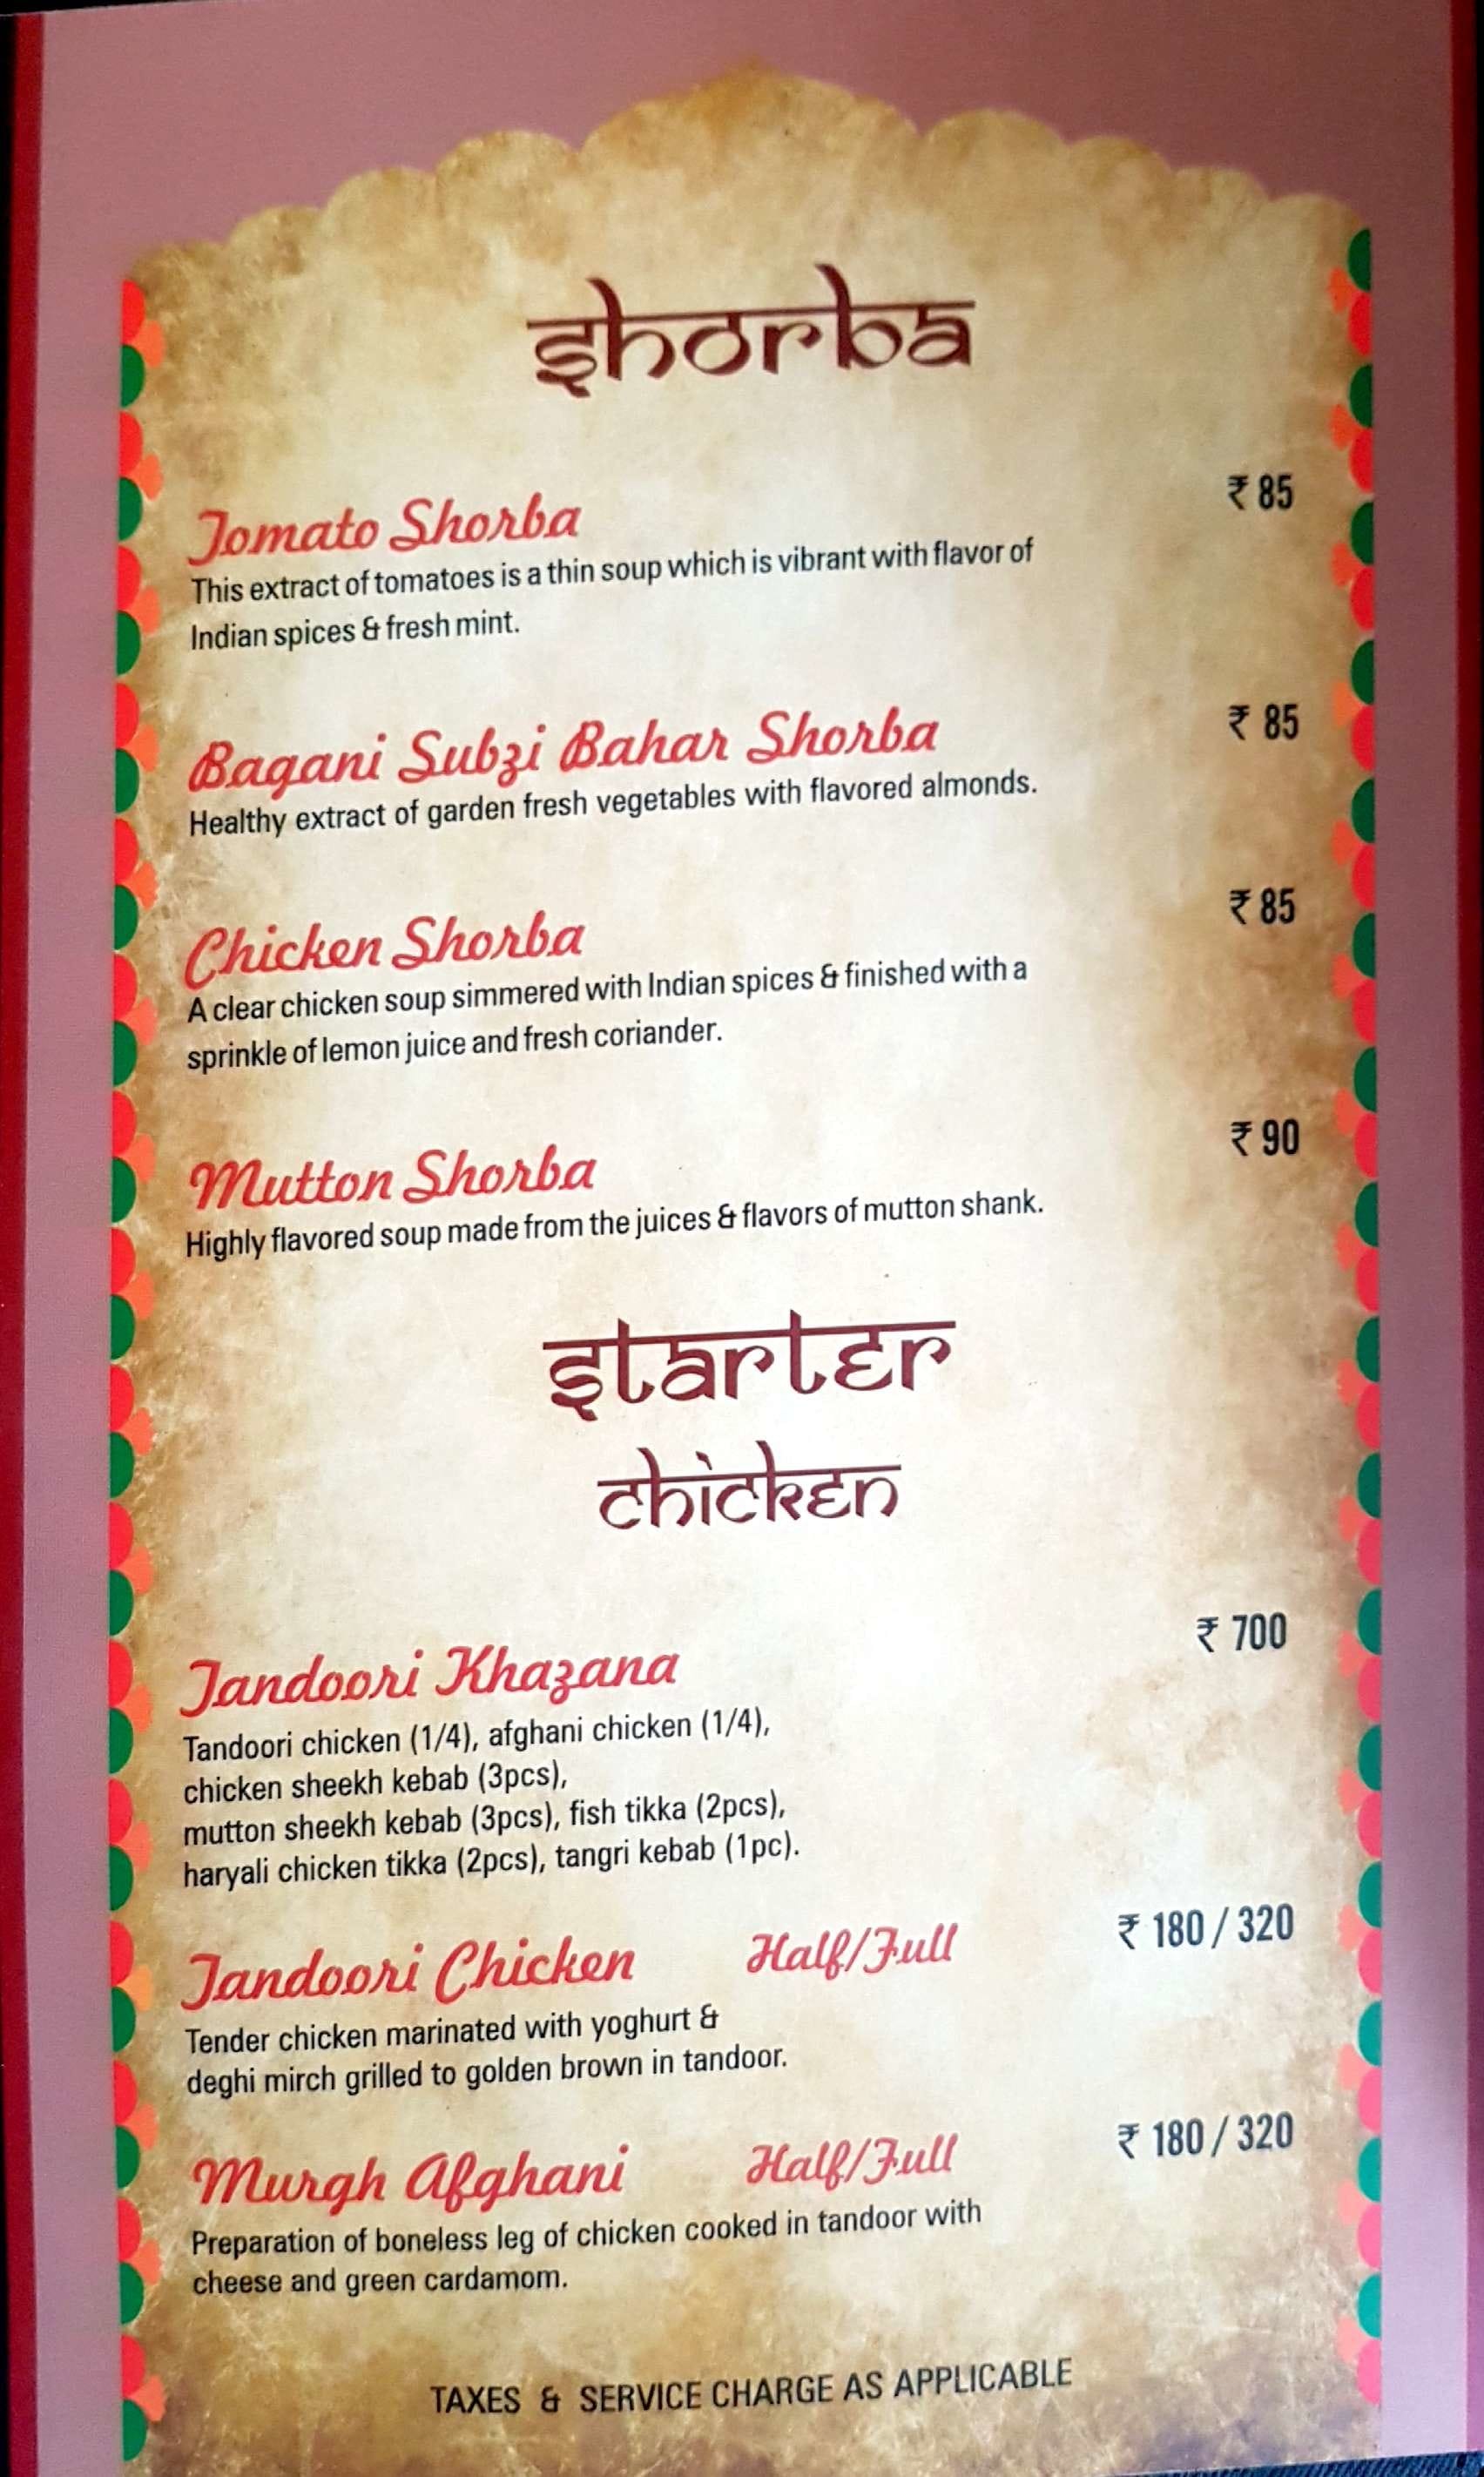 shorba
Tomato Shorba ₹ 85
This extract of tomatoes is a thin soup which is vibrant with flavor of
Indian spices & fresh mint.
Bagani Subzi Bahar Shorba ₹ 85
Healthy extract of garden fresh vegetables with flavored almonds.
Chicken Shorba ₹ 85
A clear chicken soup simmered with Indian spices & finished with a
sprinkle of lemon juice and fresh coriander.
Mutton Shorba ₹ 90
Highly flavored soup made from the juices & flavors of mutton shank.
starter
chicken
Tandoori Khazana ₹ 700
Tandoori chicken (1/4), afghani chicken (1/4),
chicken sheekh kebab (3pcs),
mutton sheekh kebab (3pcs), fish tikka (2pcs),
haryali chicken tikka (2pcs), tangri kebab (1pc).
Tandoori Chicken Half/Full ₹ 180 / 320
Tender chicken marinated with yoghurt &
deghi mirch grilled to golden brown in tandoor.
Murgh Afghani Half/Full ₹ 180 / 320
Preparation of boneless leg of chicken cooked in tandoor with
cheese and green cardamom.
TAXES & SERVICE CHARGE AS APPLICABLE